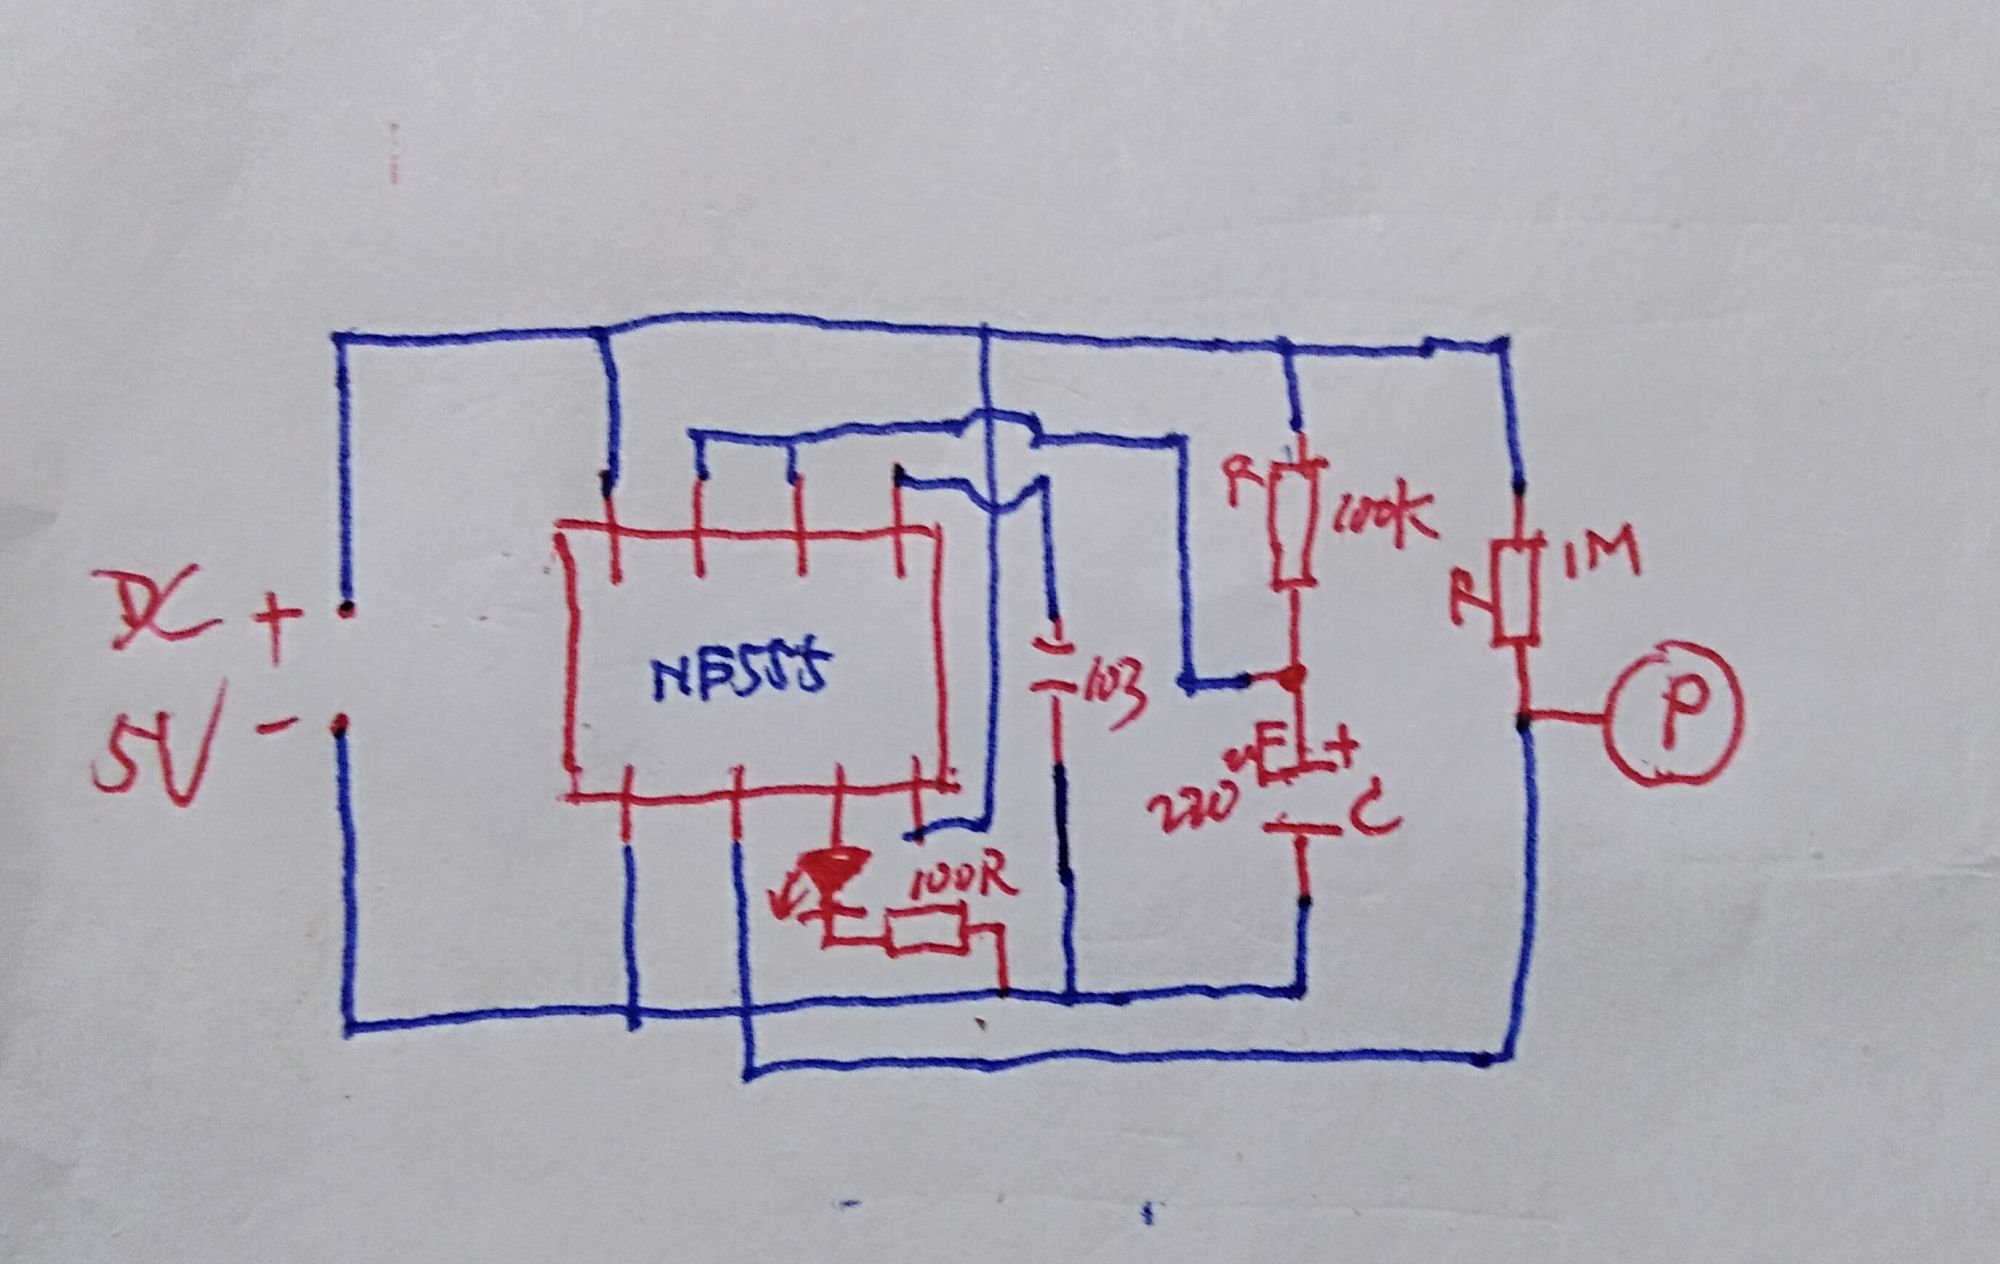 DC +
5V -
NE555
100R
103
R 100K
220uF +
C
R 1M
P
- +